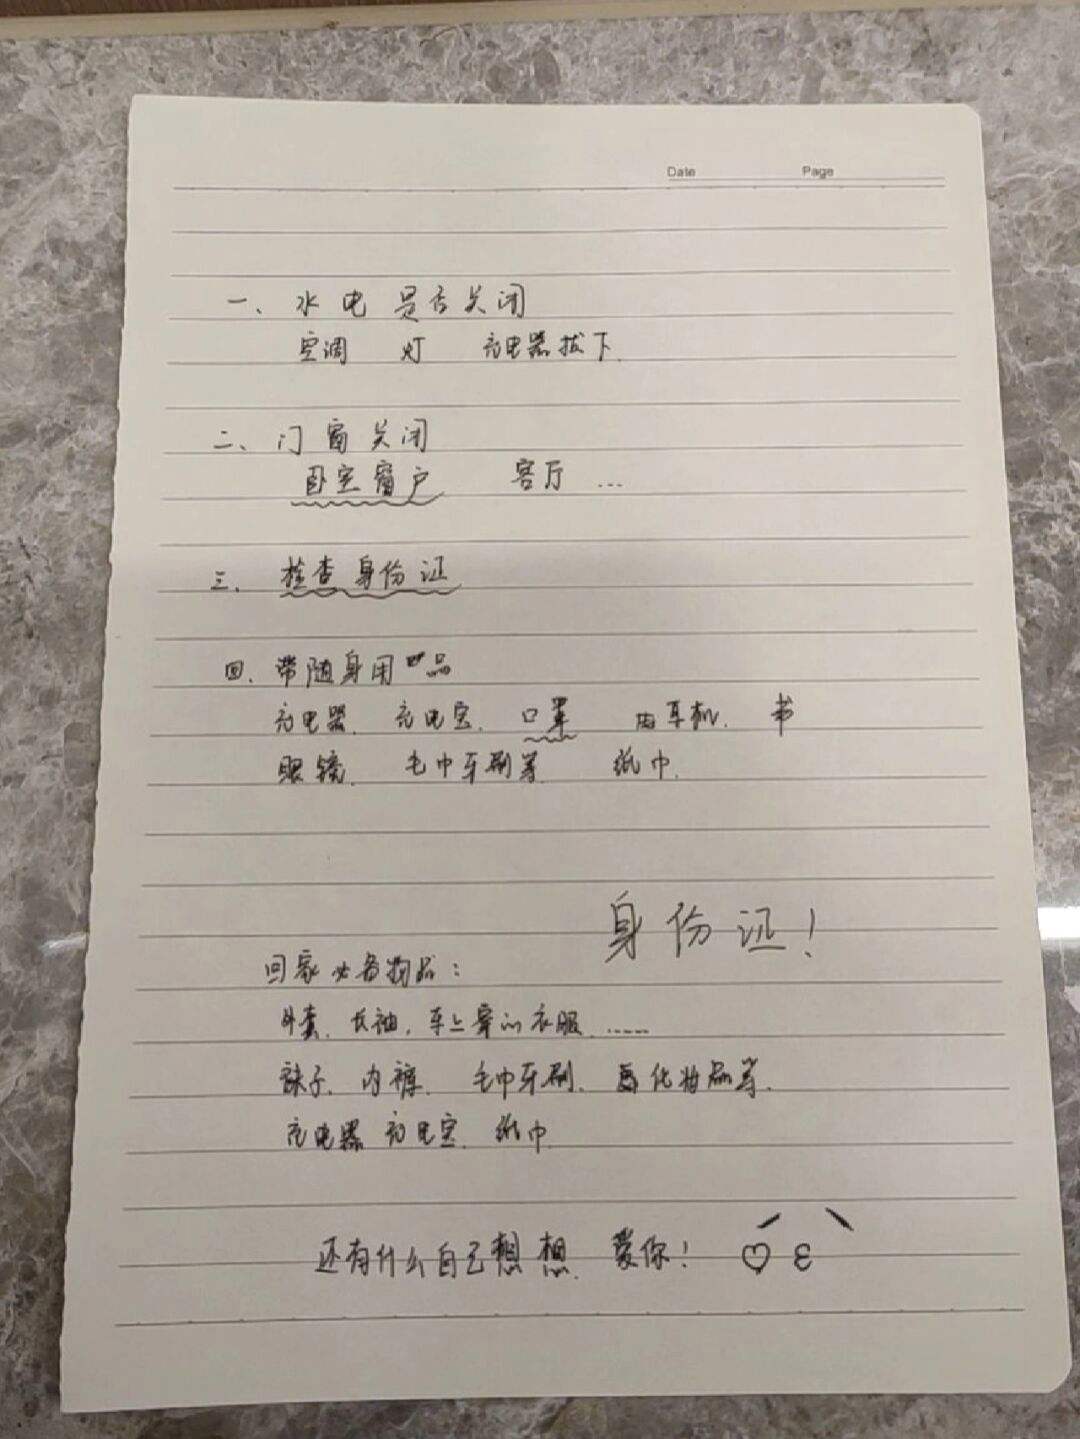 Date Page
一、水电是否关闭
空调 灯 充电器拔下.
二、门窗关闭
卧室窗户 客厅 ...
三、检查身份证
四、带随身用品
充电器、充电宝、口罩 耳机、书
眼镜、毛巾牙刷等 纸巾.
身份证！
回家必备物品：
外套、长袖，车上穿的衣服......
袜子、内裤、毛巾牙刷、化妆品等.
充电器 充电宝、纸巾
还有什么自己想想、爱你！